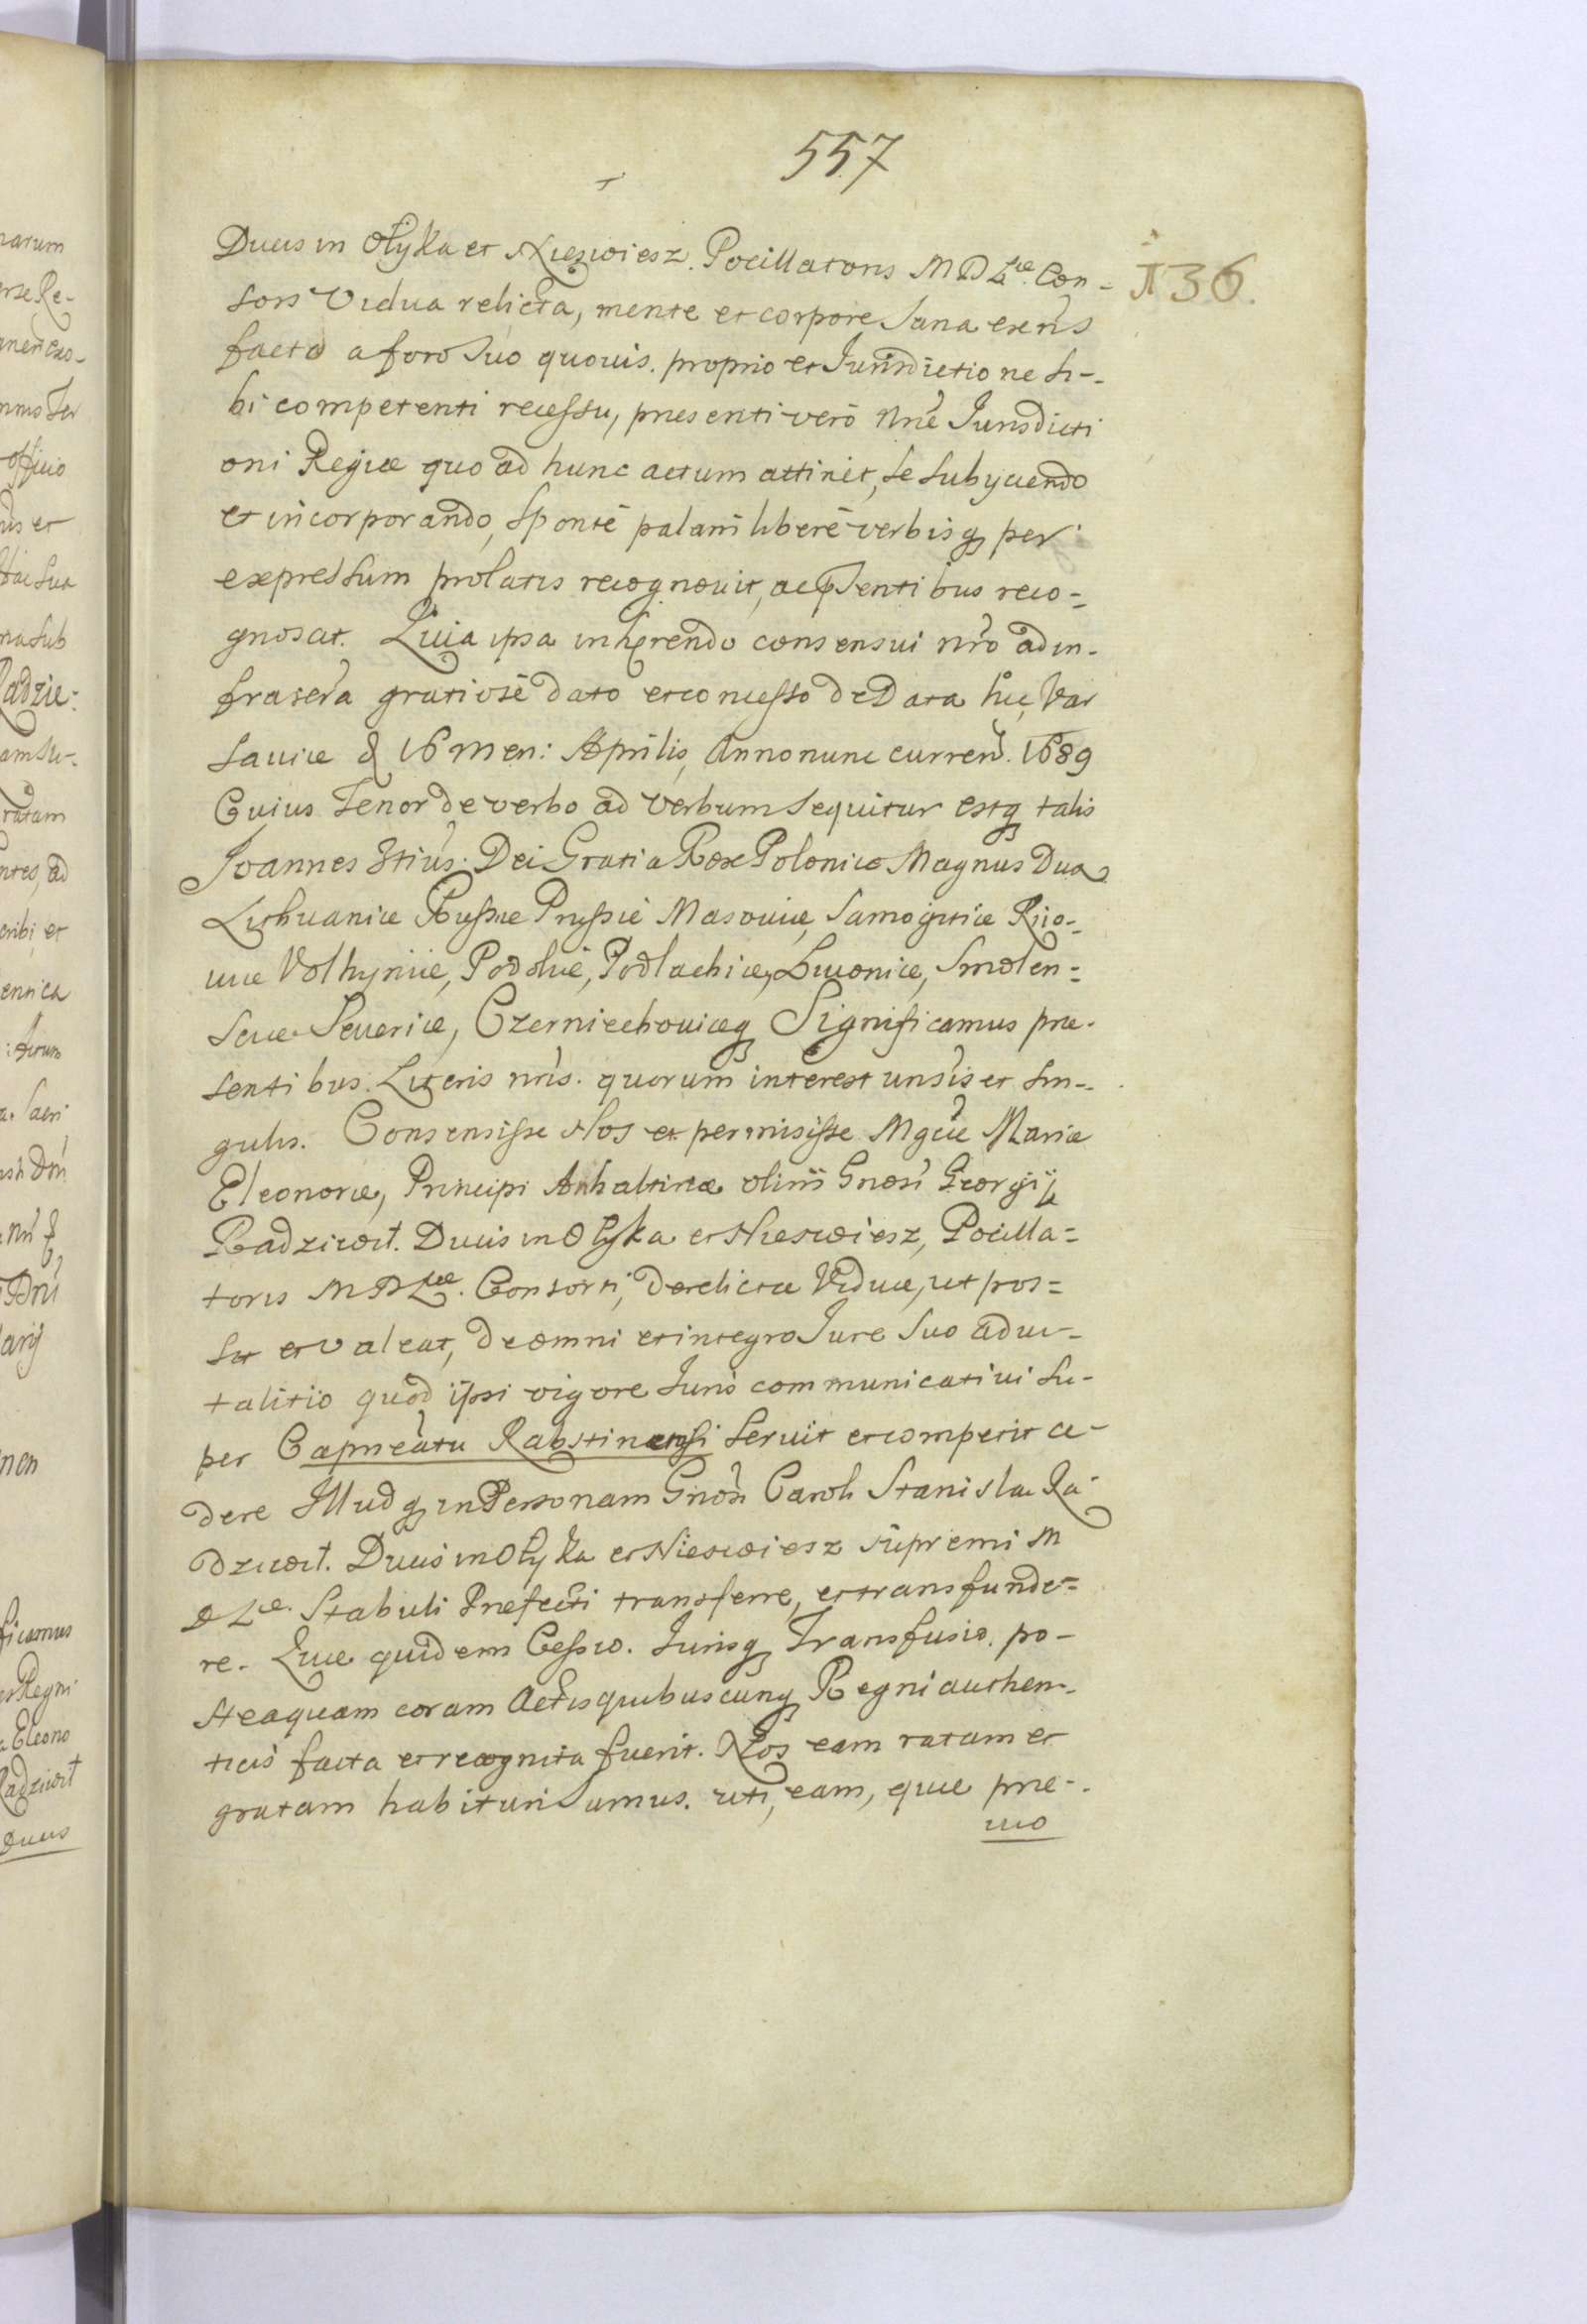 557
Ducis in Ołyka et Nieswiesz. Pocillatoris M D Lᵃᵉ. Con-
136.
sors Vidua relicta, mente et corpore sana exens
facto a foro suo quovis. proprio et Jurisdictione si-
bi competenti recessu, præsenti verò nræ Jurisdicti
oni Regiæ quo ad hunc actum attinet, se subyciendo
et incorporando, sponte palam liberè verbisq per
expressum prolatis recognovit, ac pntibus reco-
gnoscit. Quia ipsa inhærendo consensui nro ad in-
frascra gratiosè dato et concesso de Data hic Var
saviæ d 16 men: Aprilis, Anno nunc curren. 1689
Cuius Tenor de verbo ad verbum sequitur estq talis
Joannes 3tius. Dei Gratia Rex Poloniæ Magnus Dux
Lithuaniæ Russiæ Prussiæ Masoviæ, Samogitiæ Kijo-
viæ Volhyniæ, Podoliæ, Podlachiæ, Livoniæ, Smolen-
sciæ Severiæ, Czerniechoviæq Significamus præ-
sentibus Literis nris. quorum interest unsis et sin-
gulis. Consensisse Nos et permisisse Mgcæ Mariæ
Eleonoræ, Principi Anhaltinæ olim Gnosi Georgij
Radziwił. Ducis in Ołyka et Nieswiesz, Pocilla-
toris M D Lᵃᵉ. Consorti, derelictæ Viduæ, ut pos-
sit et valeat, de omni et integro Jure suo advi-
talitio quod ipsi vigore Juris communicativi su-
per Capneatu Rabstinensi servit et competit ce-
dere Illudq in Personam Gnosi Caroli Stanislai Ra-
dziwił. Ducis in Ołyka et Nieswiesz supremi M
D Lᵃᵉ. Stabuli Præfecti transferre, et transfunde-
re. Quæ quidem Cessio. Jurisq Transfusio. po-
steaquam coram Actis quibuscunq Regni authen-
ticis facta et recognita fuerit. Nos eam ratam et
gratam habituri sumus. uti, eam, quæ præ-
vio